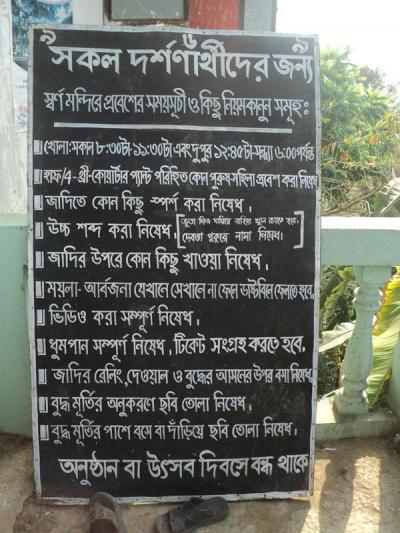 সকল দর্শণার্থীদের জন্য
স্বর্ণ মন্দিরে প্রবেশের সময়সূচী ও কিছু নিয়মকানুন সমূহ:
খোলা:সকাল ৮:৩০টা-১১:৩০টা এবং দুপুর ১২:৪৫টা-সন্ধ্যা ৬:০০পর্যন্ত
হাফ/4-থ্রী-কোয়ার্টার প্যান্ট পরিহিত কোন পুরুষ-মহিলা প্রবেশ করা নিষেধ
জাদিতে কোন কিছু স্পর্শ করা নিষেধ,
উচ্চ শব্দ করা নিষেধ,
জুতা নিচ সিঁড়ির বাহিরে খুলে রাখতে হবে,
দেবতা পুকুরে নামা নিষেধ।
জাদির উপরে কোন কিছু খাওয়া নিষেধ,
ময়লা-আর্বজনা যেখানে সেখানে না ফেলে ডাষ্টবিনে ফেলতে হবে,
ভিডিও করা সম্পূর্ণ নিষেধ,
ধুমপান সম্পূর্ণ নিষেধ, টিকেট সংগ্রহ করতে হবে,
জাদির রেলিং,দেওয়াল ও বুদ্ধের আসনের উপর বসা নিষেধ,
বুদ্ধ মূর্তির অনুকরণে ছবি তোলা নিষেধ,
বুদ্ধ মূর্তির পাশে বসে বা দাঁড়িয়ে ছবি তোলা নিষেধ,
অনুষ্ঠান বা উৎসব দিবসে বন্ধ থাকে